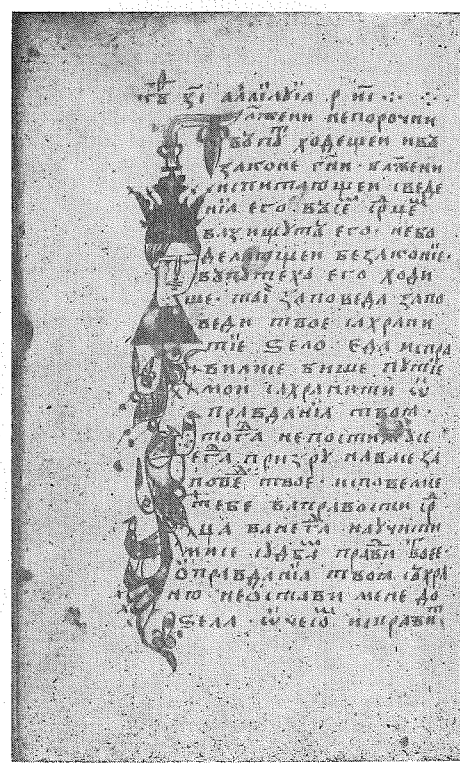 з҃і аллилѹіа р иі ·:·
лажени непорочни
въпꙋ ходещеи ивъ
законе г҃ни · блажени
испитающеи сведе
ніꙗ его · въсе ср҃це
възищꙋть его · небо
делающеи безаконіе ·
въпꙋтехъ его ходи
ше · ти заповеда запо
веди твое съхрани
тіе ѕело · еда испра
вилисе бише пꙋтіе
мои съхранити ѿ
правданіꙗ твоꙗ ·
тогⷣа непостижꙋсе
егⷣа призрꙋ навьсе за
пове твое · исповемсе
тебе въправости ср
ца вънегⷣа наꙋчити
мисе сꙋдбы правⷣи твое ·
ѡправданіꙗ твоꙗ съхра
ню неѡстави мене до
ѕела · ѿчесо исправи